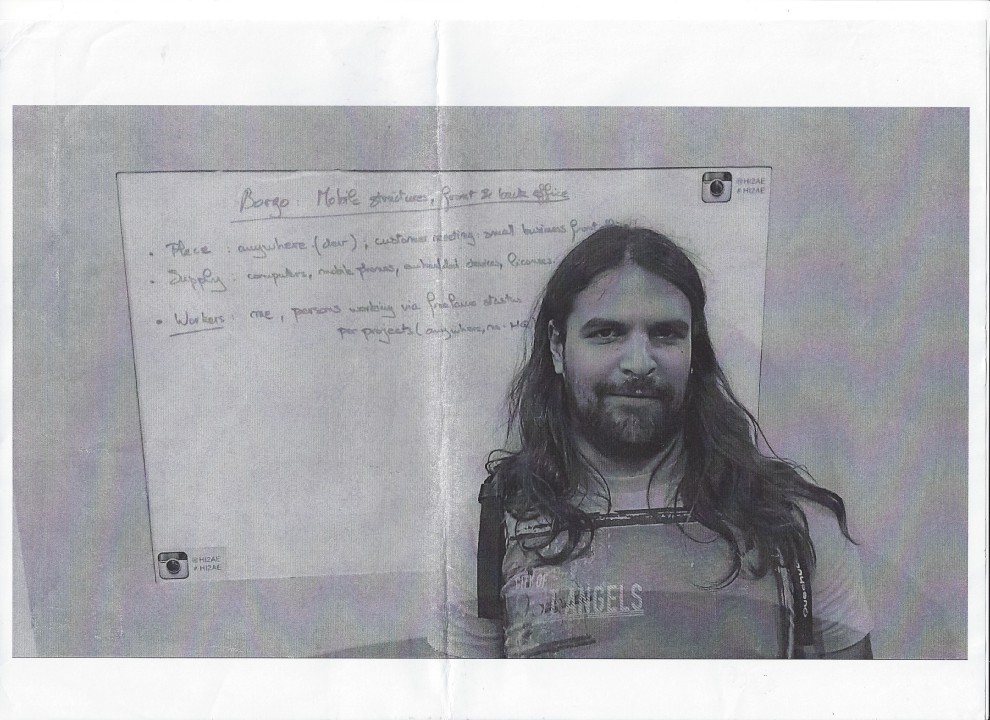 Borgo: Mobile structures, front & back office
@HI2AE
# HI2AE
• Place : anywhere (door) ; customer meeting: small business front
• Supply : computers, mobile phones, embedded devices, licenses.
• Workers : me, persons working via freelance status
per projects (anywhere,
@HI2AE
# HI2AE
CITY OF
ANGELS